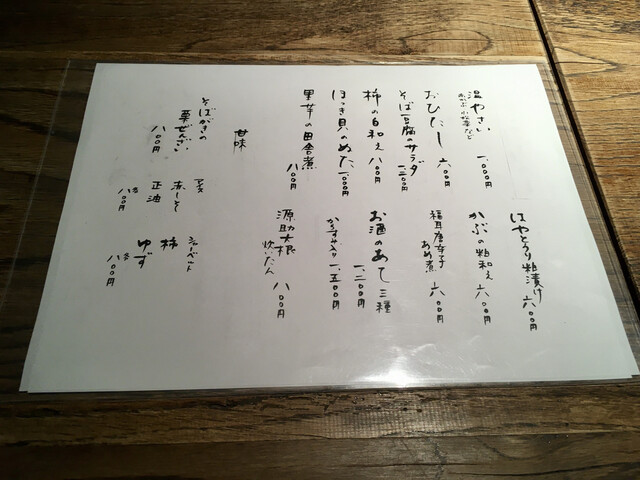 温やさい 一、〇〇〇円
かぶ 小松菜など
おひたし 六〇〇円
そば豆腐のサラダ 一、二〇〇円
柿の白和え 八〇〇円
ほっき貝のぬた 一、〇〇〇円
里芋の田舎煮 八〇〇円
はやとうり粕漬け 六〇〇円
かぶの粕和え 六〇〇円
福耳唐辛子
あめ煮 六〇〇円
お酒のあて三種 一、二〇〇円
からすみ入り 一、五〇〇円
源助大根
炊いたん 八〇〇円
甘味
そばがきの
栗ぜんざい 八〇〇円
アイス
赤しそ
正油
各八〇〇円
シャーベット
柿
ゆず
各八〇〇円